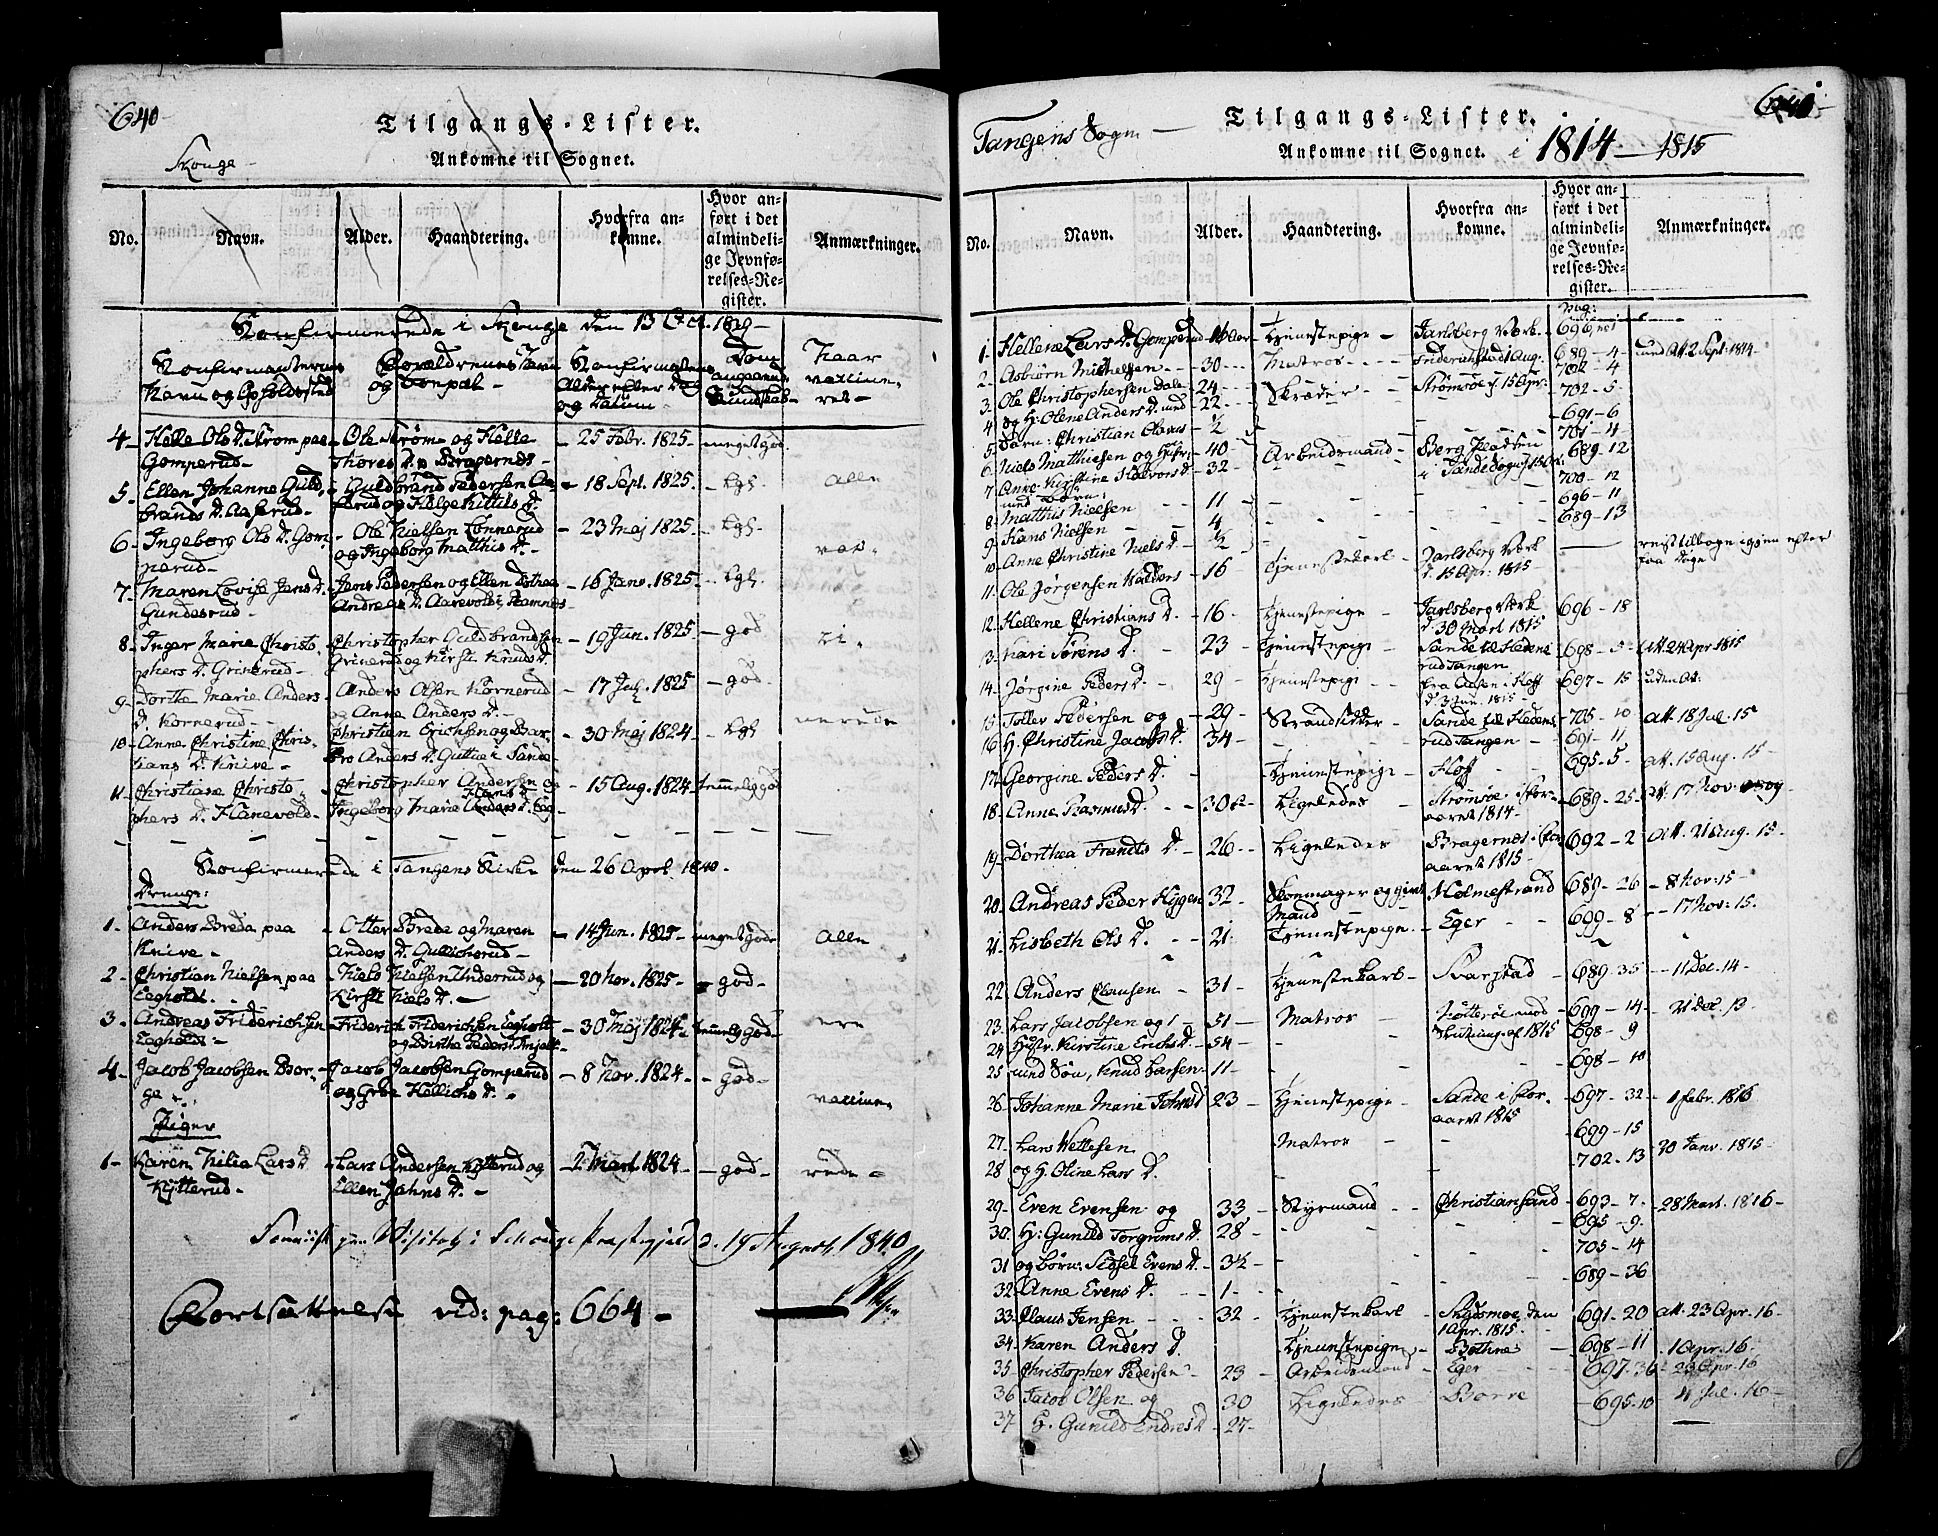 640
Tilgangs-Lister.
Skouge
Ankomne til Sognet.
No.
Navn.
Alder.
Haandtering.
Hvorfra ankomne.
Hvor anført i det almindelige Jevnførelses-Register.
Anmærkninger.
Konfirmerede i Skouge den 13 Oct. 1839
Konfirmanternes Navn og Opholdsted
Forældrenes Navn og
Konfirmandens Alder eller Aar og Datum
Dom angaaende Kundskab
Haar vaccineret
4 Helle Ols D. Strøm paa Gomperud - Ole Strøm og Helle Thores D. p Bragernes - 25 Febr. 1825 - meget god
5 Ellen Johanne Guldbrands D. Aaserud - Guldbrand Pedersen Aaserud og Helge Kittils D. - 18 Sept. 1825 - Lgl. - Alle
6 Ingeborg Ols D. Gomperud - Ole Nielsen Lønnerud og Ingeborg Matthis D. - 23 Maj 1825 - Lgl. - vac
7 Maren Lovise Jens D. Gunderud - Jens Pedersen og Ellen Dorthea Andreas D. - 16 Janv. 1825 - Lgl.
8 Inger Marie Christophers D. Grinerud - Christopher Guldbrandsen Grinerud og Kirsti Knuds D. - 19 Jun. 1825 - god - zi
9 Dorthe Marie Anders D. Kornerud - Anders Olsen Kornerud og Anne Anders D. - 17 Jul. 1825 - god
10 Anne Christine Christians D. Knive - Christian Erichsen og Barbro Anders D. Guttu i Sande - 30 Maj 1824 - Lgl - nerede
11 Christiane Christophers D. Hanevold - Christopher Andersen og Ingeborg Marie Hans D. - 15 Aug. 1824 - temmelig god
Konfirmerede i Tangens Kirke den 26 April 1840
Drenge:
1 Anders Breda paa Knive - Otter Brede og Maren Anders D. Gullichsrud - 14 Jun. 1825 - meget god - Alle
2 Christian Nielsen paa Egholt - Niels Nielsen Underud og Kirsti Niels D. - 20 Nov. 1825 - god
3 Andreas Friderichsen Egholt - Friderich Friderichsen Egholt og Birthe Peders D. - 30 Maj 1824 - temmelig god - ere
4 Jacob Jacobsen Borge - Jacob Jacobsen Gomperud og Gro Hellichs D. - 8 Nov. 1824 - god - vaccine
Piger
1 Karen Nilia Lars D. Kytterud - Lars Andersen Kytterud og Ellen Jahns D. - 2 Mart 1824 - god - rede
Visitats i Schouge Præstegjeld d. 14 August 1840
Fortsættelse vid: pag: 664
Tangens Sogn
Tilgangs-Lister.
Ankomne til Sognet. i 1814 - 1815
No.
Navn.
Alder.
Haandtering.
Hvorfra ankomne.
Hvor anført i det almindelige Jevnførelses-Register.
Anmærkninger.
Pag:
1 Hellene Lars D. Gomperud - 16 Aar - Tjenestepige - Jarlsberg Værk - 696
2 Asbiørn Michelsen - 30 - Matros - Friderichstad 1 Aug. - 689 - 4 - Att. 2 Sept. 1814
3 Ole Christophersen Dale - 24 - Skræder - Strømsøe 15 Apr. - 702 - 4
4 og H: Olene Anders D. med - 22 - 702 - 5
5 Barn: Christian Olavus - ½ - 691 - 6
6 Niels Matthiesen og Hstr: - 40 - Arbeidsmand - Berg Pladsen i Sande Sogn - 701 - 4
7 Anne Kirstine Halvors D. med Børn: - 32 - 689 - 12
8 Matthis Nielsen - 11 - 700 - 12
9 Hans Nielsen - 4 - 696 - 11
10 Anne Christine Niels D. - ½ - 689 - 13
11 Ole Jørgensen - 16 - Tjenestekarl - Jarlsberg Værk d. 15 Apr: 1815 - reist tilbage igjen efter faa Dage
12 Hellene Christians D. - 16 - Tjenestepige - Jarlsberg Værk d. 30 Mart 1815 - 696 - 18
13 Kari Sørens D. - 23 - Tjenestepige - Sande til Hedensrud Tangen - 698 - 5 - Att. 24 Apr 1815
14 Jørgine Peders D. - 29 - Tjenestepige - fra Aasen i Hoff d. 3 Jun. 1815 - 697 - 15 - uden Att.
15 Toller Pedersen og - 29 - Strandsidder - Sande til Hedensrud Tangen - 705 - 10 - Att. 18 Jul. 15
16 H. Christine Jacobs D. - 34 - 691 - 11
17 Georgine Peders D. - Tjenestepige - Hoff - 695 - 5 - att. 15 Aug. 15
18 Anne Rasmus D. - 30 - Ligeledes - Strømsøe i Foraaret 1814 - 689 - 25 - Att. 17 Nov.
19 Dorthea Frandts D. - 26 - Ligeledes - Bragernes i Foraaret 1815 - 692 - 2 - Att. 21 Aug. 15
20 Andreas Peder Hygen - 32 - Skomager og gift Mand - Holmestrand - 689 - 26 - 8 Nov. 15
21 Lisbeth Ols D. - 21 - Tjenestepige - Eger - 699 - 8 - 17 Nov: 15
22 Anders Clausen - 31 - Tjenestekarl - Svarstad - 689 - 35 - 11 Dec. 14
23 Lars Jacobsen og - 51 - Matros - Nøtterøe med Flytning af 1815 - 699 - 14 - 21 Dec. 13
24 Hustr. Kirstine Erichs D. - 54 - 698 - 9
25 med Søn, Knud Larsen - 11 - 698 - 10
26 Johanne Marie Johns D - 23 - Tjenestepige - Sande i Foraaret 1815 - 697 - 32 - 1 Febr. 1816
27 Lars Wettesen - Matros - 699 - 15
28 og H. Oline Lars D. - 702 - 13 - 20 Janv. 1815
29 Even Evensen og - 33 - Styrmand - Christiansand - 693 - 7 - 28 Mart. 1816
30 H: Gunild Torgrims D. - 28 - 695 - 9
31 og børn: Sidsel Evens D. - 3½ - 705 - 14
32 Anne Evens D. - 1 - 689 - 36
33 Claus Jensen - 32 - Tjenestekarl - den 1 Apr. 1815 - 691 - 20 - att. 23 Apr. 16
34 Karen Anders D. - Tjenestepige - Bothne - 698 - 11 - 1 Apr. 16
35 Christopher Pedersen - 23 - Arbeidsmand - Eger - 697 - 36 - 23 Apr. 16
36 Jacob Olsen og - 30 - Ligeledes - Borre - 695 - 10 - 4 Jul. 16
37 H. Gunild Endres D - 27